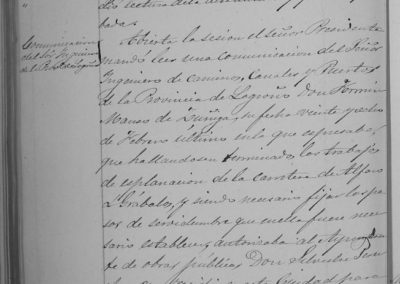 badas.
Comunicacion
del Sor Ingeniero
Abierta la sesión el señor Presidente
mandó leer una comunicacion del Señor
Ingeniero de caminos, Canales y Puertos
de la Provincia de Logroño Don Fermin
Manso de Zuñiga, su fecha veinte y ocho
de Febrero último en la que espresaba,
que hallandose terminado, los trabajos
de esplanacion de la carretera de Alfaro
á Grábalos, y siendo necesario fijar los pa-
sos de servidumbre que en ella fuere nece-
sario establecer, autorizaba al Ayudan-
te de obras públicas Don Silvestre
Ciudad para